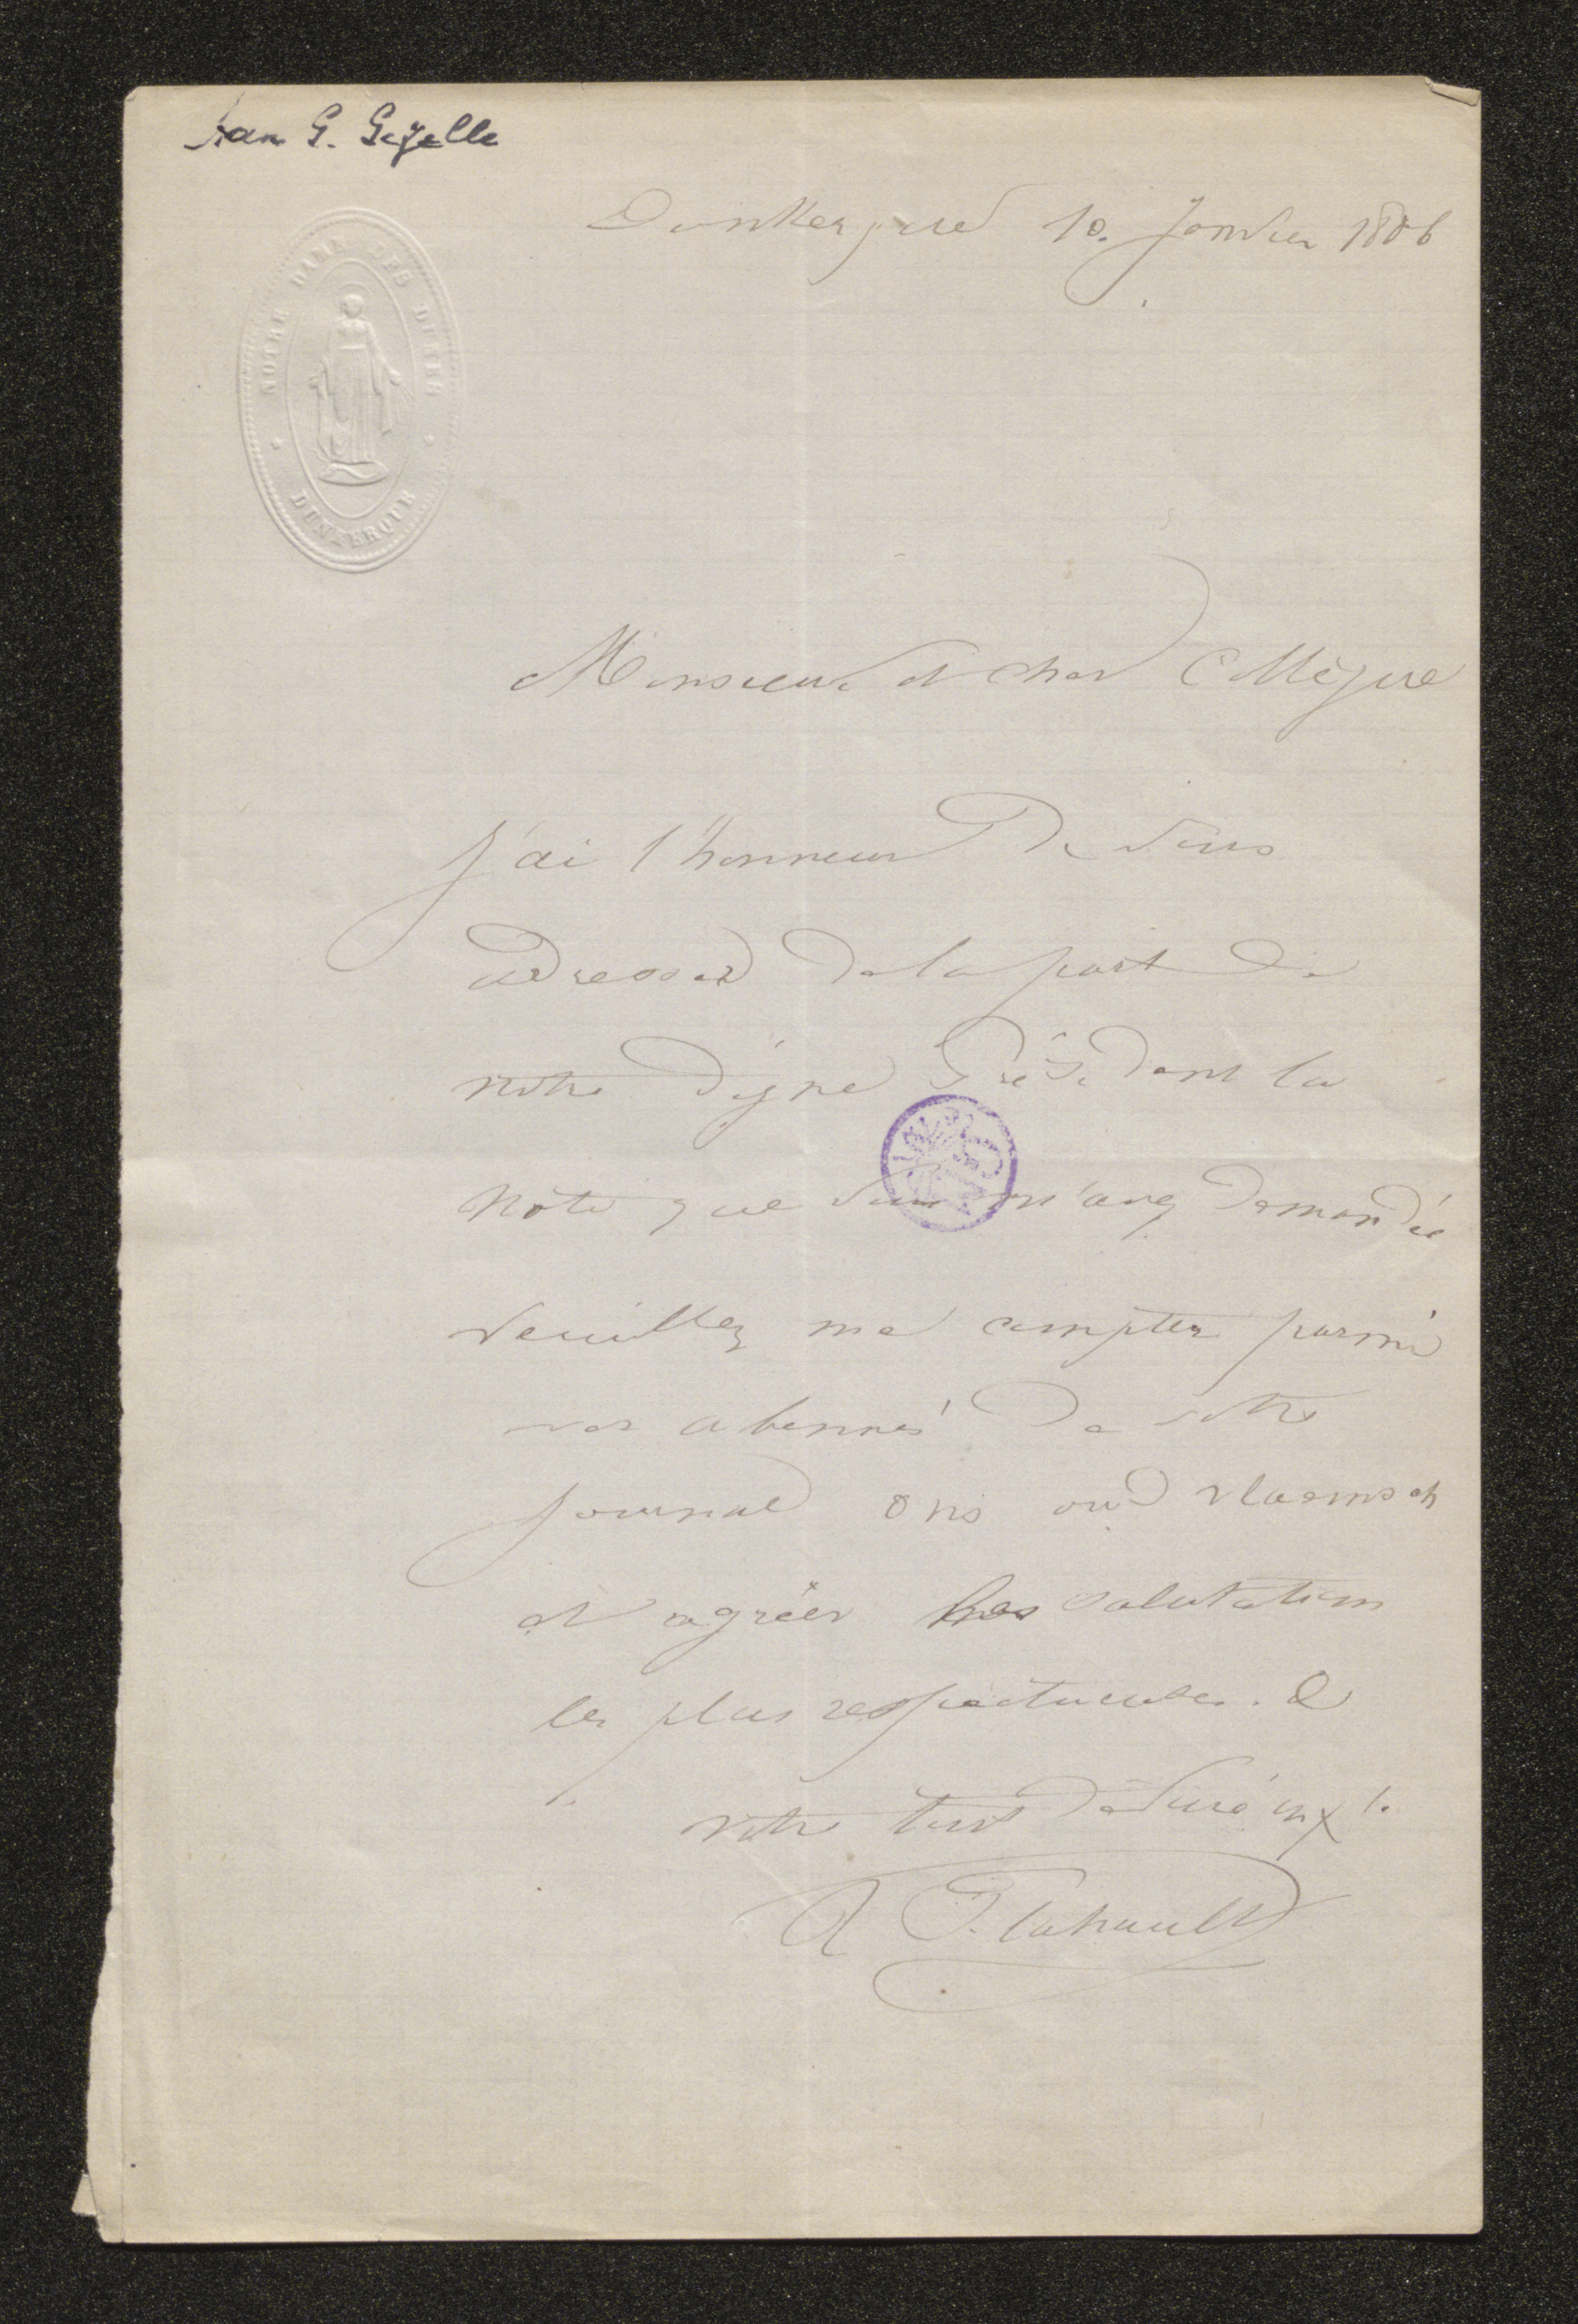 Aan G. Gezelle
Dunkerque 10. Janvier 1886
NOTRE DAME DES DUNES
DUNKERQUE
Monsieur et cher Collègue
J'ai l'honneur de vous
adresser de la part de
notre digne Président la
note que vous m'avez demandée
veuillez me compter parmi
vos abonnés de votre
journal ons oud vlaemsch
et agréer les salutations
les plus respectueuses. &
votre tout dévoué